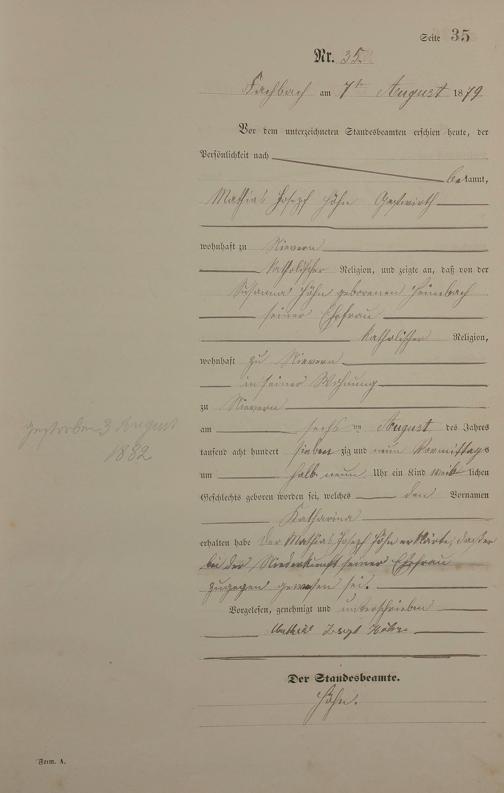 Seite 35
Nr. 35.
Fachbach am 7ten August 1879
Vor dem unterzeichneten Standesbeamten erschien heute, der
Persönlichkeit nach
bekannt,
Mathias Josef Höhn Gastwirth
wohnhaft zu Nievern
katholischer Religion, und zeigte an, daß von der
Susanna Höhn geborenen Heimbach
seiner Ehefrau
katholischer Religion,
wohnhaft zu Nievern
in seiner Wohnung
zu Nievern
am sechsten August des Jahres
tausend acht hundert siebenzig und neun Vormittags
um halb neun Uhr ein Kind weiblichen
Geschlechts geboren worden sei, welches den Vornamen
Katharina
erhalten habe Der Mathias Josef Höhn erklärte, daß er
bei der Niederkunft seiner Ehefrau
zugegen gewesen sei.
Vorgelesen, genehmigt und unterschrieben
Josef Höhn
Der Standesbeamte.
Höhn.
gestorben 3 August
1882
Form. A.